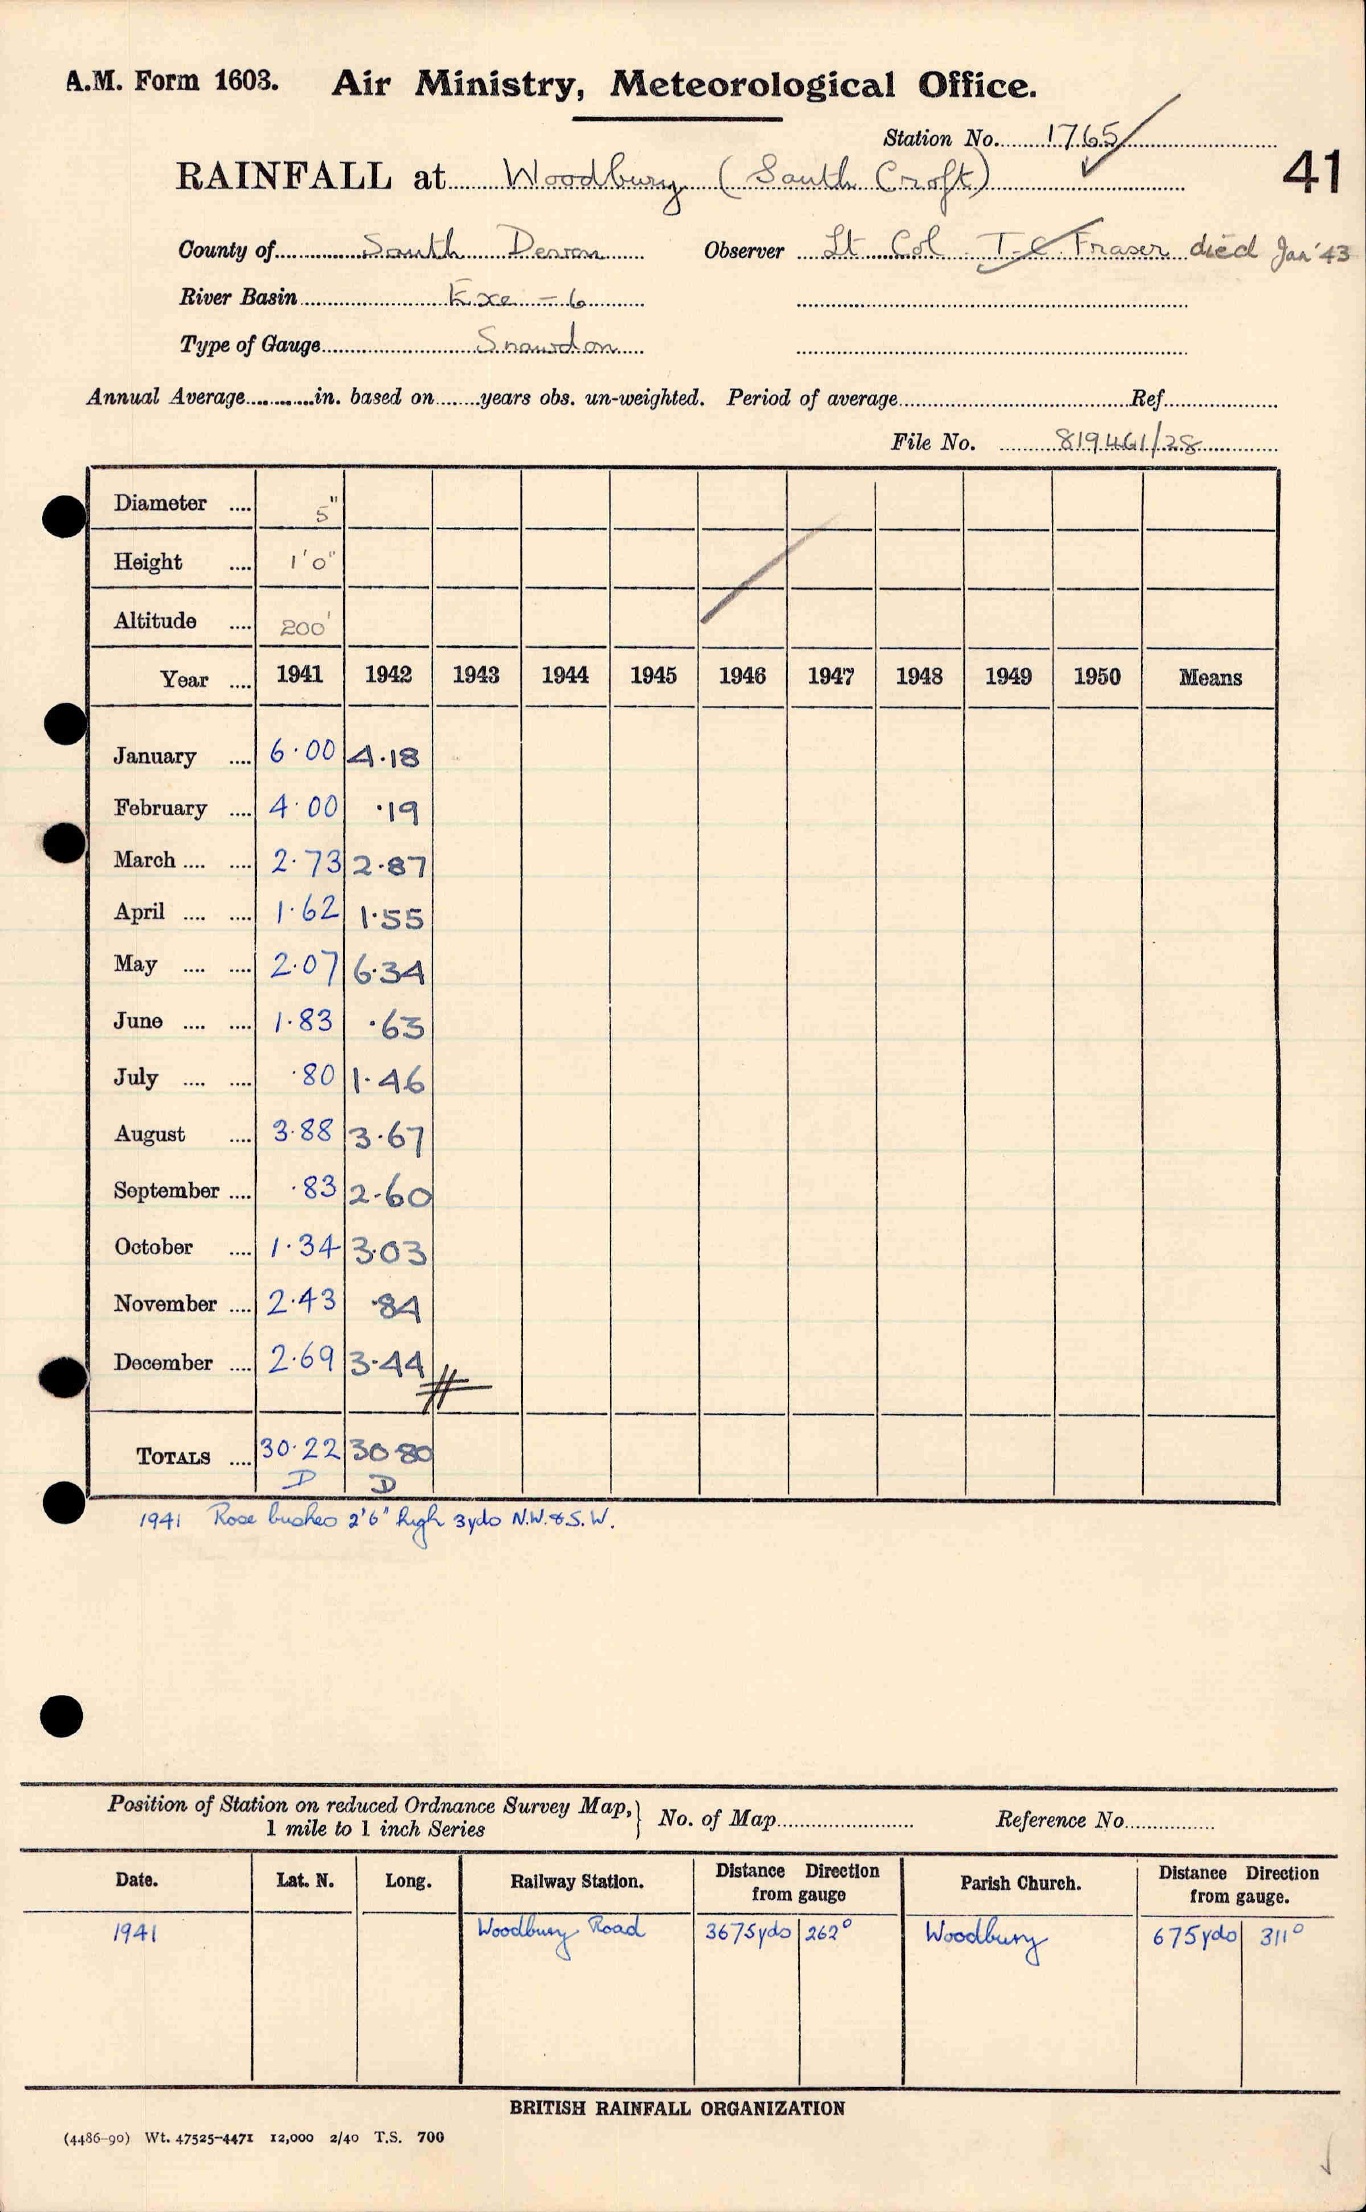 A.M. Form 1603. Air Ministry, Meteorological Office.
Station No. 1765
RAINFALL at Woodbury (South Croft) 41
County of South Devon Observer Lt Col T.C. Fraser died Jan '43
River Basin Exe - 6
Type of Gauge Snowdon
Annual Average............in. based on.......years obs. un-weighted. Period of average Ref.
File No. 819461/28
Diameter .... 5"
Height .... 1'0"
Altitude .... 200'
Year .... 1941 1942 1943 1944 1945 1946 1947 1948 1949 1950 Means
January .... 6.00 4.18
February .... 4.00 .19
March .... .... 2.73 2.87
April .... .... 1.62 1.55
May .... .... 2.07 6.34
June .... .... 1.83 .63
July .... .... .80 1.46
August .... 3.88 3.67
September .... .83 2.60
October .... 1.34 3.03
November .... 2.43 .84
December .... 2.69 3.44
TOTALS .... 30.22 30.80
D D
1941 Rose bushes 2'6" high 3yds N.W. & S.W.
Position of Station on reduced Ordnance Survey Map, } No. of Map Reference No.
1 mile to 1 inch Series
Date. Lat. N. Long. Railway Station. Distance Direction from gauge Parish Church. Distance Direction from gauge.
1941 Woodbury Road 3675yds 262° Woodbury 675yds 311°
BRITISH RAINFALL ORGANIZATION
(4486-90) Wt. 47525-4471 12,000 2/40 T.S. 700